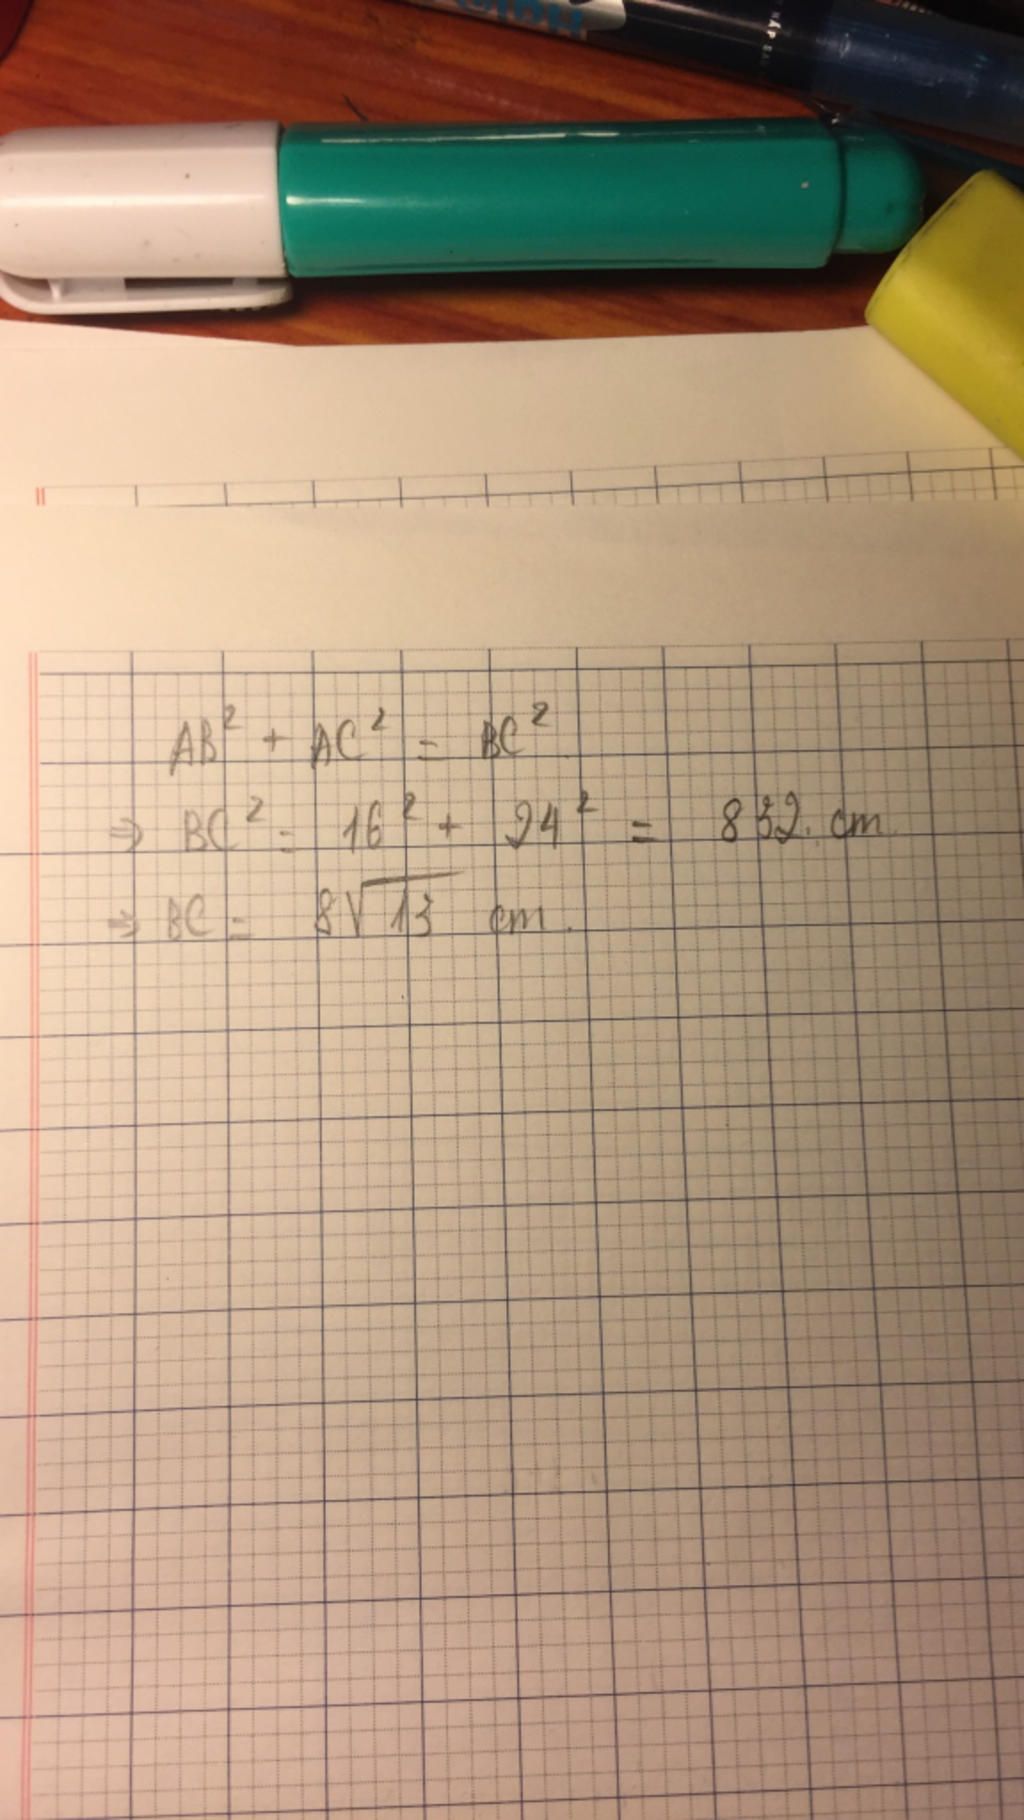 AB² + AC² = BC²
⇒ BC² = 16² + 24² = 832. cm
⇒ BC = 8√13 cm.